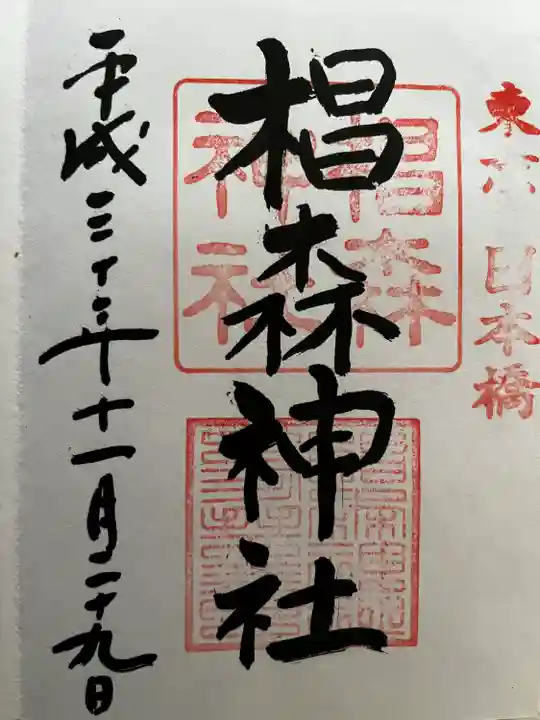 東京日本橋
椙森神社
椙森
神社
平成三十年十一月二十九日